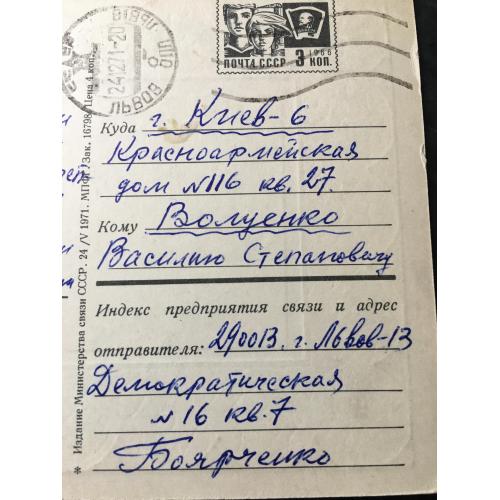 ЛЬВОВ
241271-20
ПОЧТА СССР
1966
3 КОП.
Куда г. Киев-6
Красноармейская
дом № 116 кв. 27.
Кому Волуенко
Василию Степановичу
Индекс предприятия связи и адрес
отправителя: 290013. г. Львов-13
Демократическая
№ 16 кв. 7
Боярченко
* Издание Министерства связи СССР. 24/V 1971. МПФГ. Зак. 16798. Цена 4 коп.